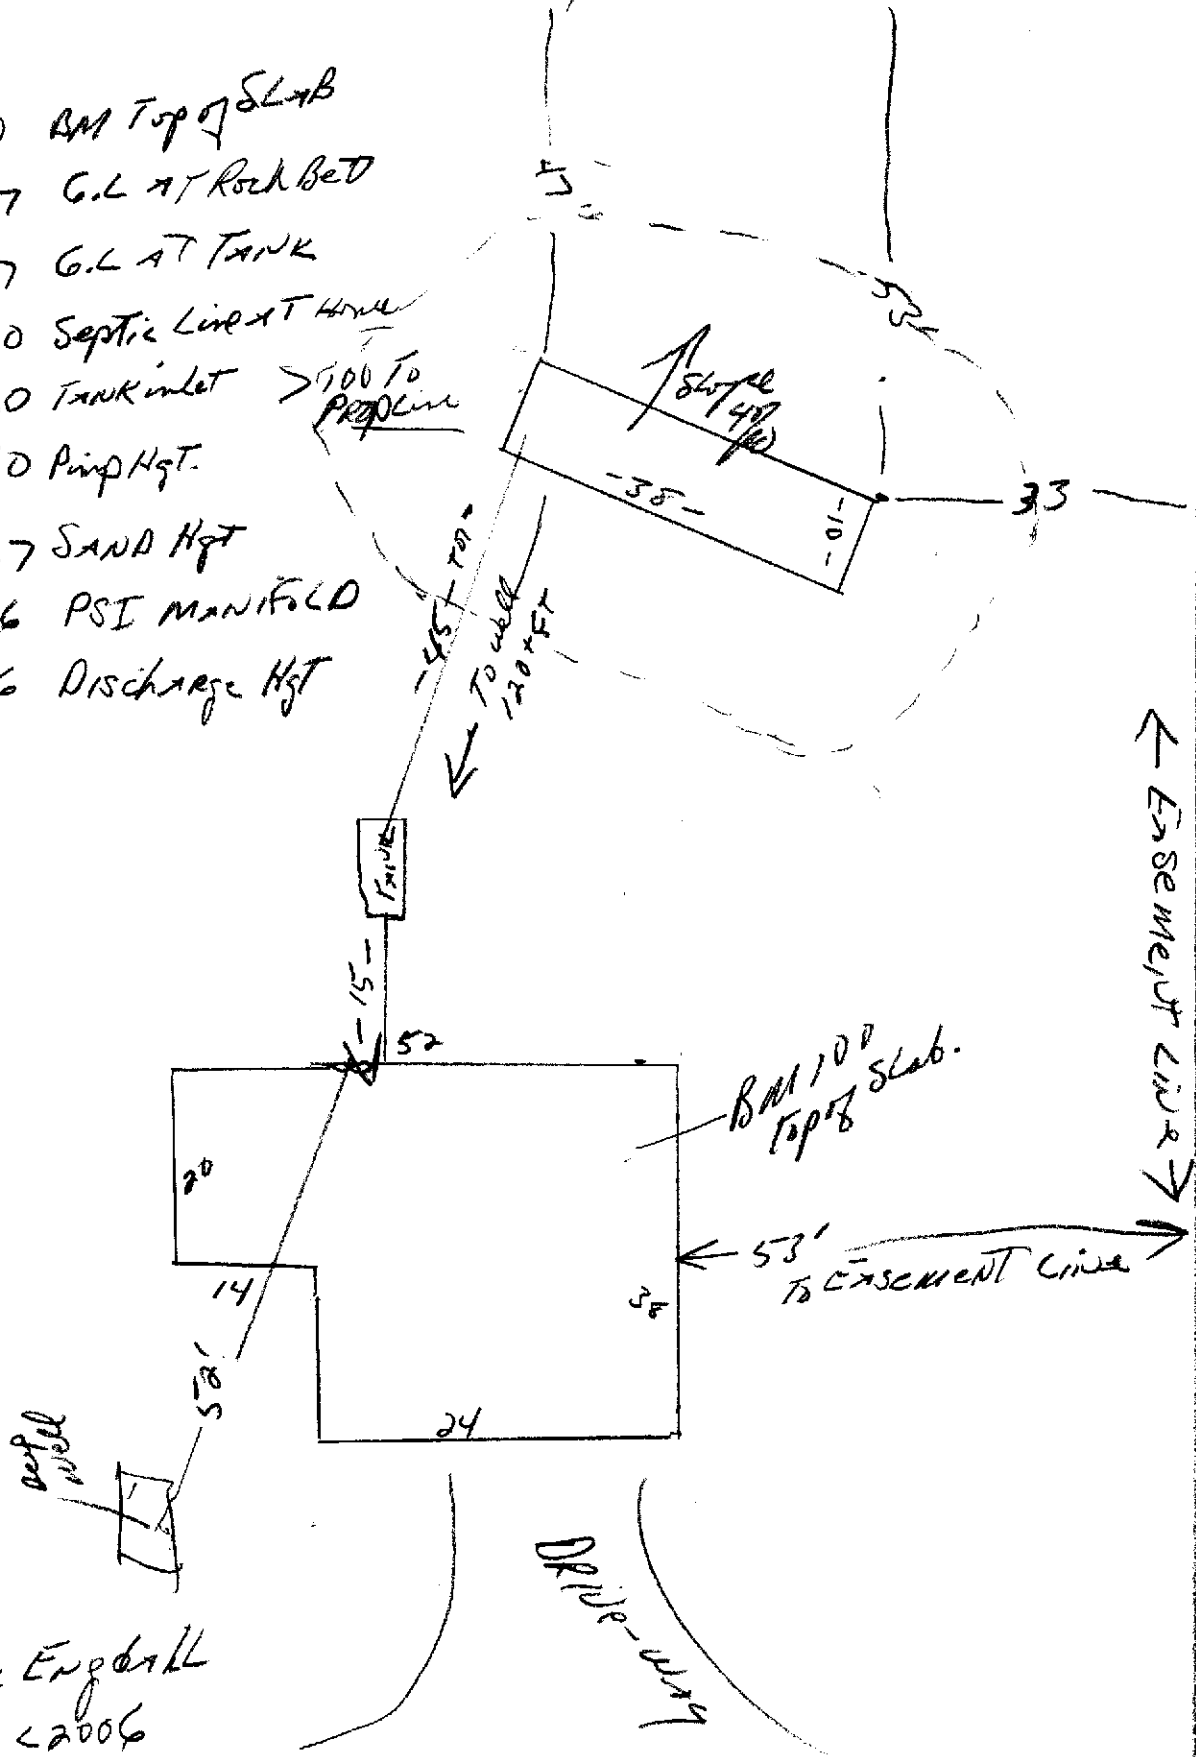 BM Top of SLAB
7 G.L AT Rock Bed
7 G.L AT TANK
0 Septic Line AT Home
0 TANK inlet
>100 To
PROP Line
0 Pump Hgt.
7 SAND Hgt
6 PSI MANIFOLD
6 Discharge Hgt
53'
Slope
4%
-38-
-10-
33
-45-
To well
120+ FT
TANK
-15-
52
BM 100
Top of Slab.
20
14
52'
24
← 53'
To EASEMENT Line
← EASEMENT Line →
Deep
well
DRIVE-WAY
Engdahl
2006